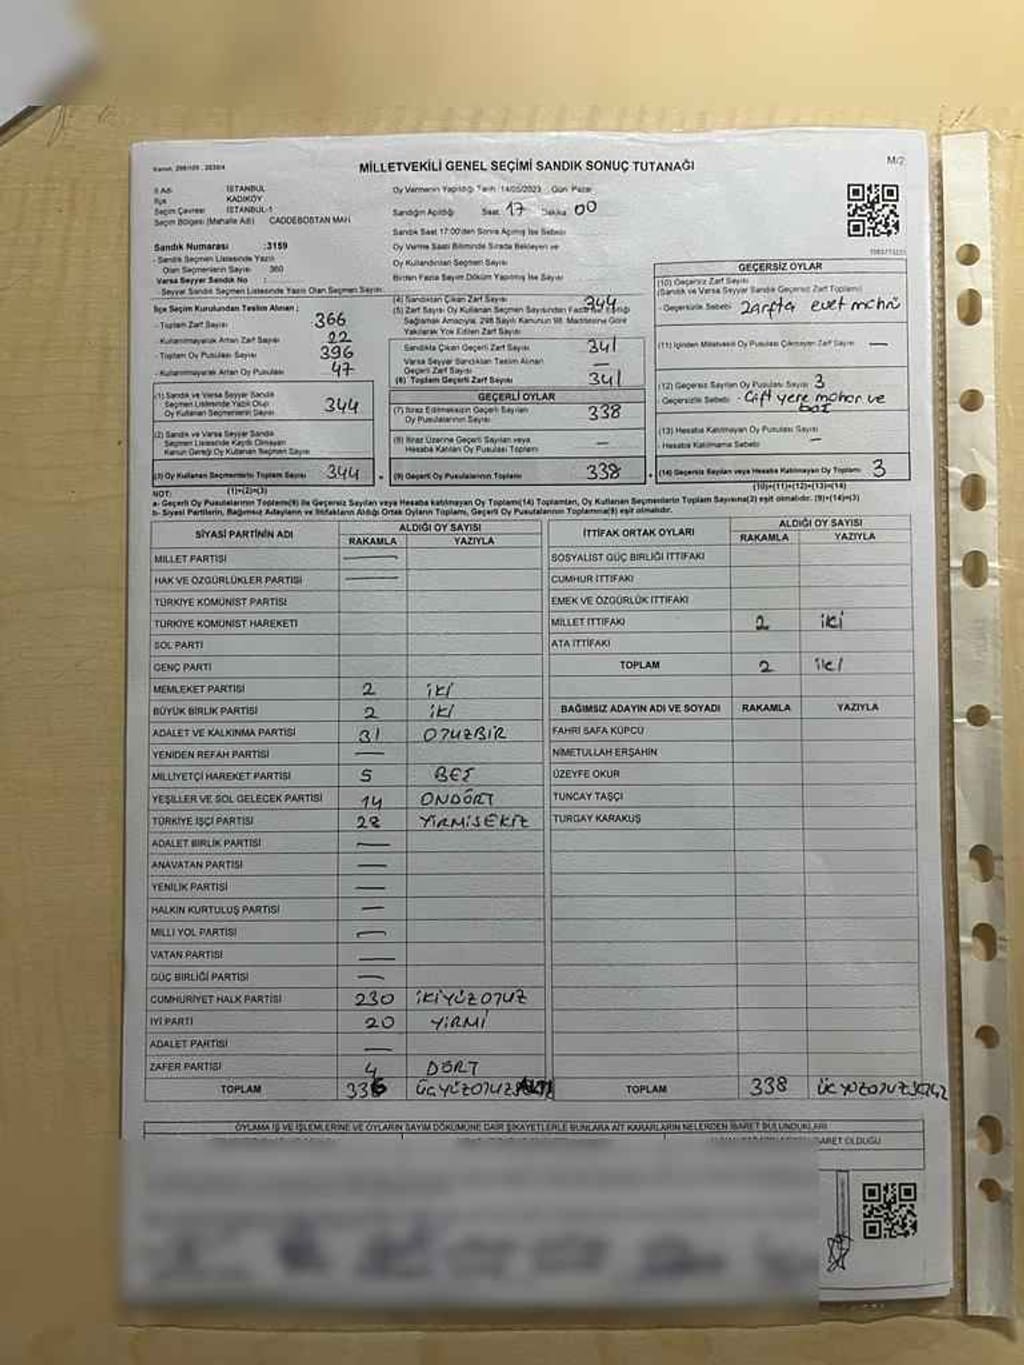 MİLLETVEKİLİ GENEL SEÇİMİ SANDIK SONUÇ TUTANAĞI
M/2
İl Adı İSTANBUL
İlçe KADIKÖY
Seçim Çevresi İSTANBUL-1
Seçim Bölgesi (Mahalle Adı) CADDEBOSTAN MAH
Sandık Numarası :3159
- Sandık Seçmen Listesinde Yazılı
Olan Seçmenlerin Sayısı 360
Varsa Seyyar Sandık No :
- Seyyar Sandık Seçmen Listesinde Yazılı Olan Seçmen Sayısı:
Oy Vermenin Yapıldığı Tarih 14/05/2023 Gün Pazar
Sandığın Açıldığı Saat 17 Dakika 00
Sandık Saat 17:00'den Sonra Açılmış İse Sebebi
Oy Verme Saati Bitiminde Sırada Bekleyen ve
Oy Kullandırılan Seçmen Sayısı
Birden Fazla Sayım Döküm Yapılmış İse Sayısı
İlçe Seçim Kurulundan Teslim Alınan ;
- Toplam Zarf Sayısı 366
- Kullanılmayarak Artan Zarf Sayısı 22
- Toplam Oy Pusulası Sayısı 396
- Kullanılmayarak Artan Oy Pusulası 47
(1) Sandık ve Varsa Seyyar Sandık
Seçmen Listesinde Yazılı Olup
Oy Kullanan Seçmenlerin Sayısı 344
(2) Sandık ve Varsa Seyyar Sandık
Seçmen Listesinde Kayıtlı Olmayan
Kanun Gereği Oy Kullanan Seçmen Sayısı
(3) Oy Kullanan Seçmenlerin Toplam Sayısı 344
(1)+(2)=(3)
(4) Sandıktan Çıkan Zarf Sayısı 344
(5) Zarf Sayısı Oy Kullanan Seçmen Sayısından Fazla İse Eşitliği
Sağlamak Amacıyla, 298 Sayılı Kanunun 98. Maddesine Göre
Yakılarak Yok Edilen Zarf Sayısı
Sandıkta Çıkan Geçerli Zarf Sayısı 341
Varsa Seyyar Sandıktan Teslim Alınan
Geçerli Zarf Sayısı —
(6) Toplam Geçerli Zarf Sayısı 341
GEÇERLİ OYLAR
(7) İtiraz Edilmeksizin Geçerli Sayılan
Oy Pusulalarının Sayısı 338
(8) İtiraz Üzerine Geçerli Sayılan veya
Hesaba Katılan Oy Pusulası Toplamı —
(9) Geçerli Oy Pusulalarının Toplamı 338
GEÇERSİZ OYLAR
(10) Geçersiz Zarf Sayısı
(Sandık ve Varsa Seyyar Sandık Geçersiz Zarf Toplamı)
- Geçersizlik Sebebi zarfta evet mührü
(11) İçinden Milletvekili Oy Pusulası Çıkmayan Zarf Sayısı —
(12) Geçersiz Sayılan Oy Pusulası Sayısı 3
- Geçersizlik Sebebi - Çift yere mühür ve
boş
(13) Hesaba Katılmayan Oy Pusulası Sayısı
- Hesaba Katılmama Sebebi —
(14) Geçersiz Sayılan veya Hesaba Katılmayan Oy Toplamı 3
(10)+(11)+(12)+(13)=(14)
NOT:
a- Geçerli Oy Pusulalarının Toplamı(9) ile Geçersiz Sayılan veya Hesaba Katılmayan Oy Toplamı(14) Toplamları, Oy Kullanan Seçmenlerin Toplam Sayısına(3) eşit olmalıdır. (9)+(14)=(3)
b- Siyasi Partilerin, Bağımsız Adayların ve İttifakların Aldığı Ortak Oyların Toplamı, Geçerli Oy Pusulalarının Toplamına(9) eşit olmalıdır.
SİYASİ PARTİNİN ADI ALDIĞI OY SAYISI
RAKAMLA YAZIYLA
MİLLET PARTİSİ —
HAK VE ÖZGÜRLÜKLER PARTİSİ —
TÜRKİYE KOMÜNİST PARTİSİ
TÜRKİYE KOMÜNİST HAREKETİ
SOL PARTİ
GENÇ PARTİ
MEMLEKET PARTİSİ 2 iki
BÜYÜK BİRLİK PARTİSİ 2 iki
ADALET VE KALKINMA PARTİSİ 31 OTUZBİR
YENİDEN REFAH PARTİSİ —
MİLLİYETÇİ HAREKET PARTİSİ 5 BEŞ
YEŞİLLER VE SOL GELECEK PARTİSİ 14 ONDÖRT
TÜRKİYE İŞÇİ PARTİSİ 28 YİRMİSEKİZ
ADALET BİRLİK PARTİSİ —
ANAVATAN PARTİSİ —
YENİLİK PARTİSİ —
HALKIN KURTULUŞ PARTİSİ —
MİLLİ YOL PARTİSİ —
VATAN PARTİSİ —
GÜÇ BİRLİĞİ PARTİSİ —
CUMHURİYET HALK PARTİSİ 230 İKİYÜZOTUZ
İYİ PARTİ 20 YİRMİ
ADALET PARTİSİ —
ZAFER PARTİSİ 4 DÖRT
TOPLAM 336
İTTİFAK ORTAK OYLARI ALDIĞI OY SAYISI
RAKAMLA YAZIYLA
SOSYALİST GÜÇ BİRLİĞİ İTTİFAKI
CUMHUR İTTİFAKI
EMEK VE ÖZGÜRLÜK İTTİFAKI
MİLLET İTTİFAKI 2 iki
ATA İTTİFAKI
TOPLAM 2 iki
BAĞIMSIZ ADAYIN ADI VE SOYADI RAKAMLA YAZIYLA
FAHRİ SAFA KÜPCÜ
NİMETULLAH ERŞAHİN
ÜZEYFE OKUR
TUNCAY TAŞÇI
TURGAY KARAKUŞ
TOPLAM 338 ÜÇYÜZOTUZSEKİZ
OYLAMA İŞ VE İŞLEMLERİNE VE OYLARIN SAYIM DÖKÜMÜNE DAİR ŞİKAYETLERLE BUNLARA AİT KARARLARIN NELERDEN İBARET BULUNDUKLARI